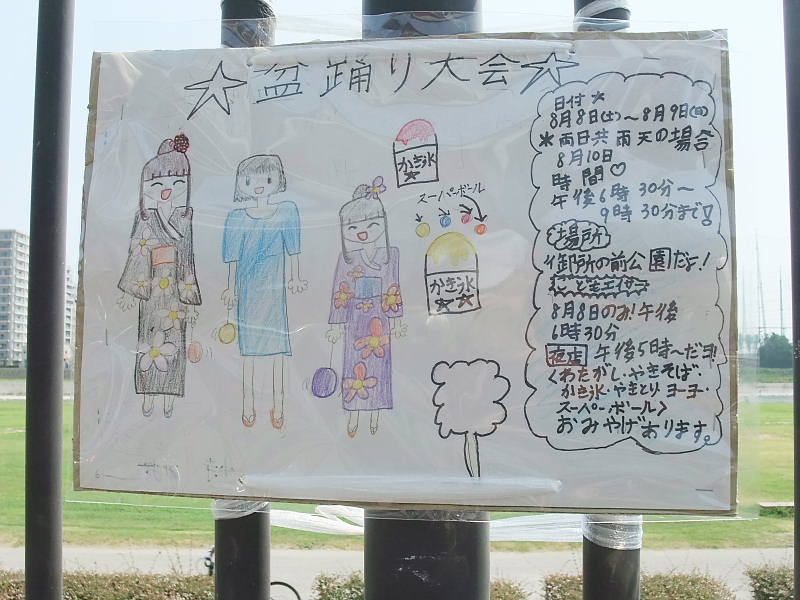 ☆盆踊り大会☆
かき氷
スーパーボール
かき氷
日付*
8月8日(土)～8月9日(日)
*両日共雨天の場合
8月10日
時間♡
午後6時30分～
9時30分まで!
場所
御所の前公園だよ!
こども王イサコ
8月8日のお!午後
6時30分
夜店 午後5時～だヨ!!
くわたがし・やきそば・
かき氷・やきとり ヨーヨー・
スーパーボール>
おみやげあります。